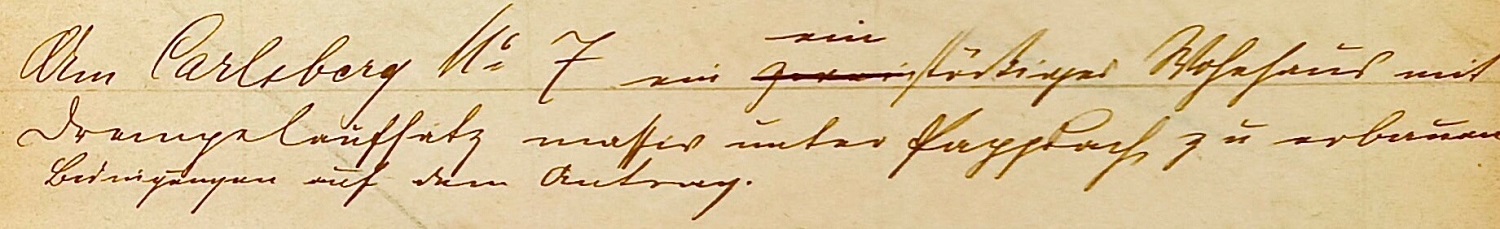 Am Carlsberg No 7 ein ein zweistöckiges Wohnhaus mit
Drempelaufsatz massiv unter Pappdach zu erbauen
Bedingungen auf dem Antrag.